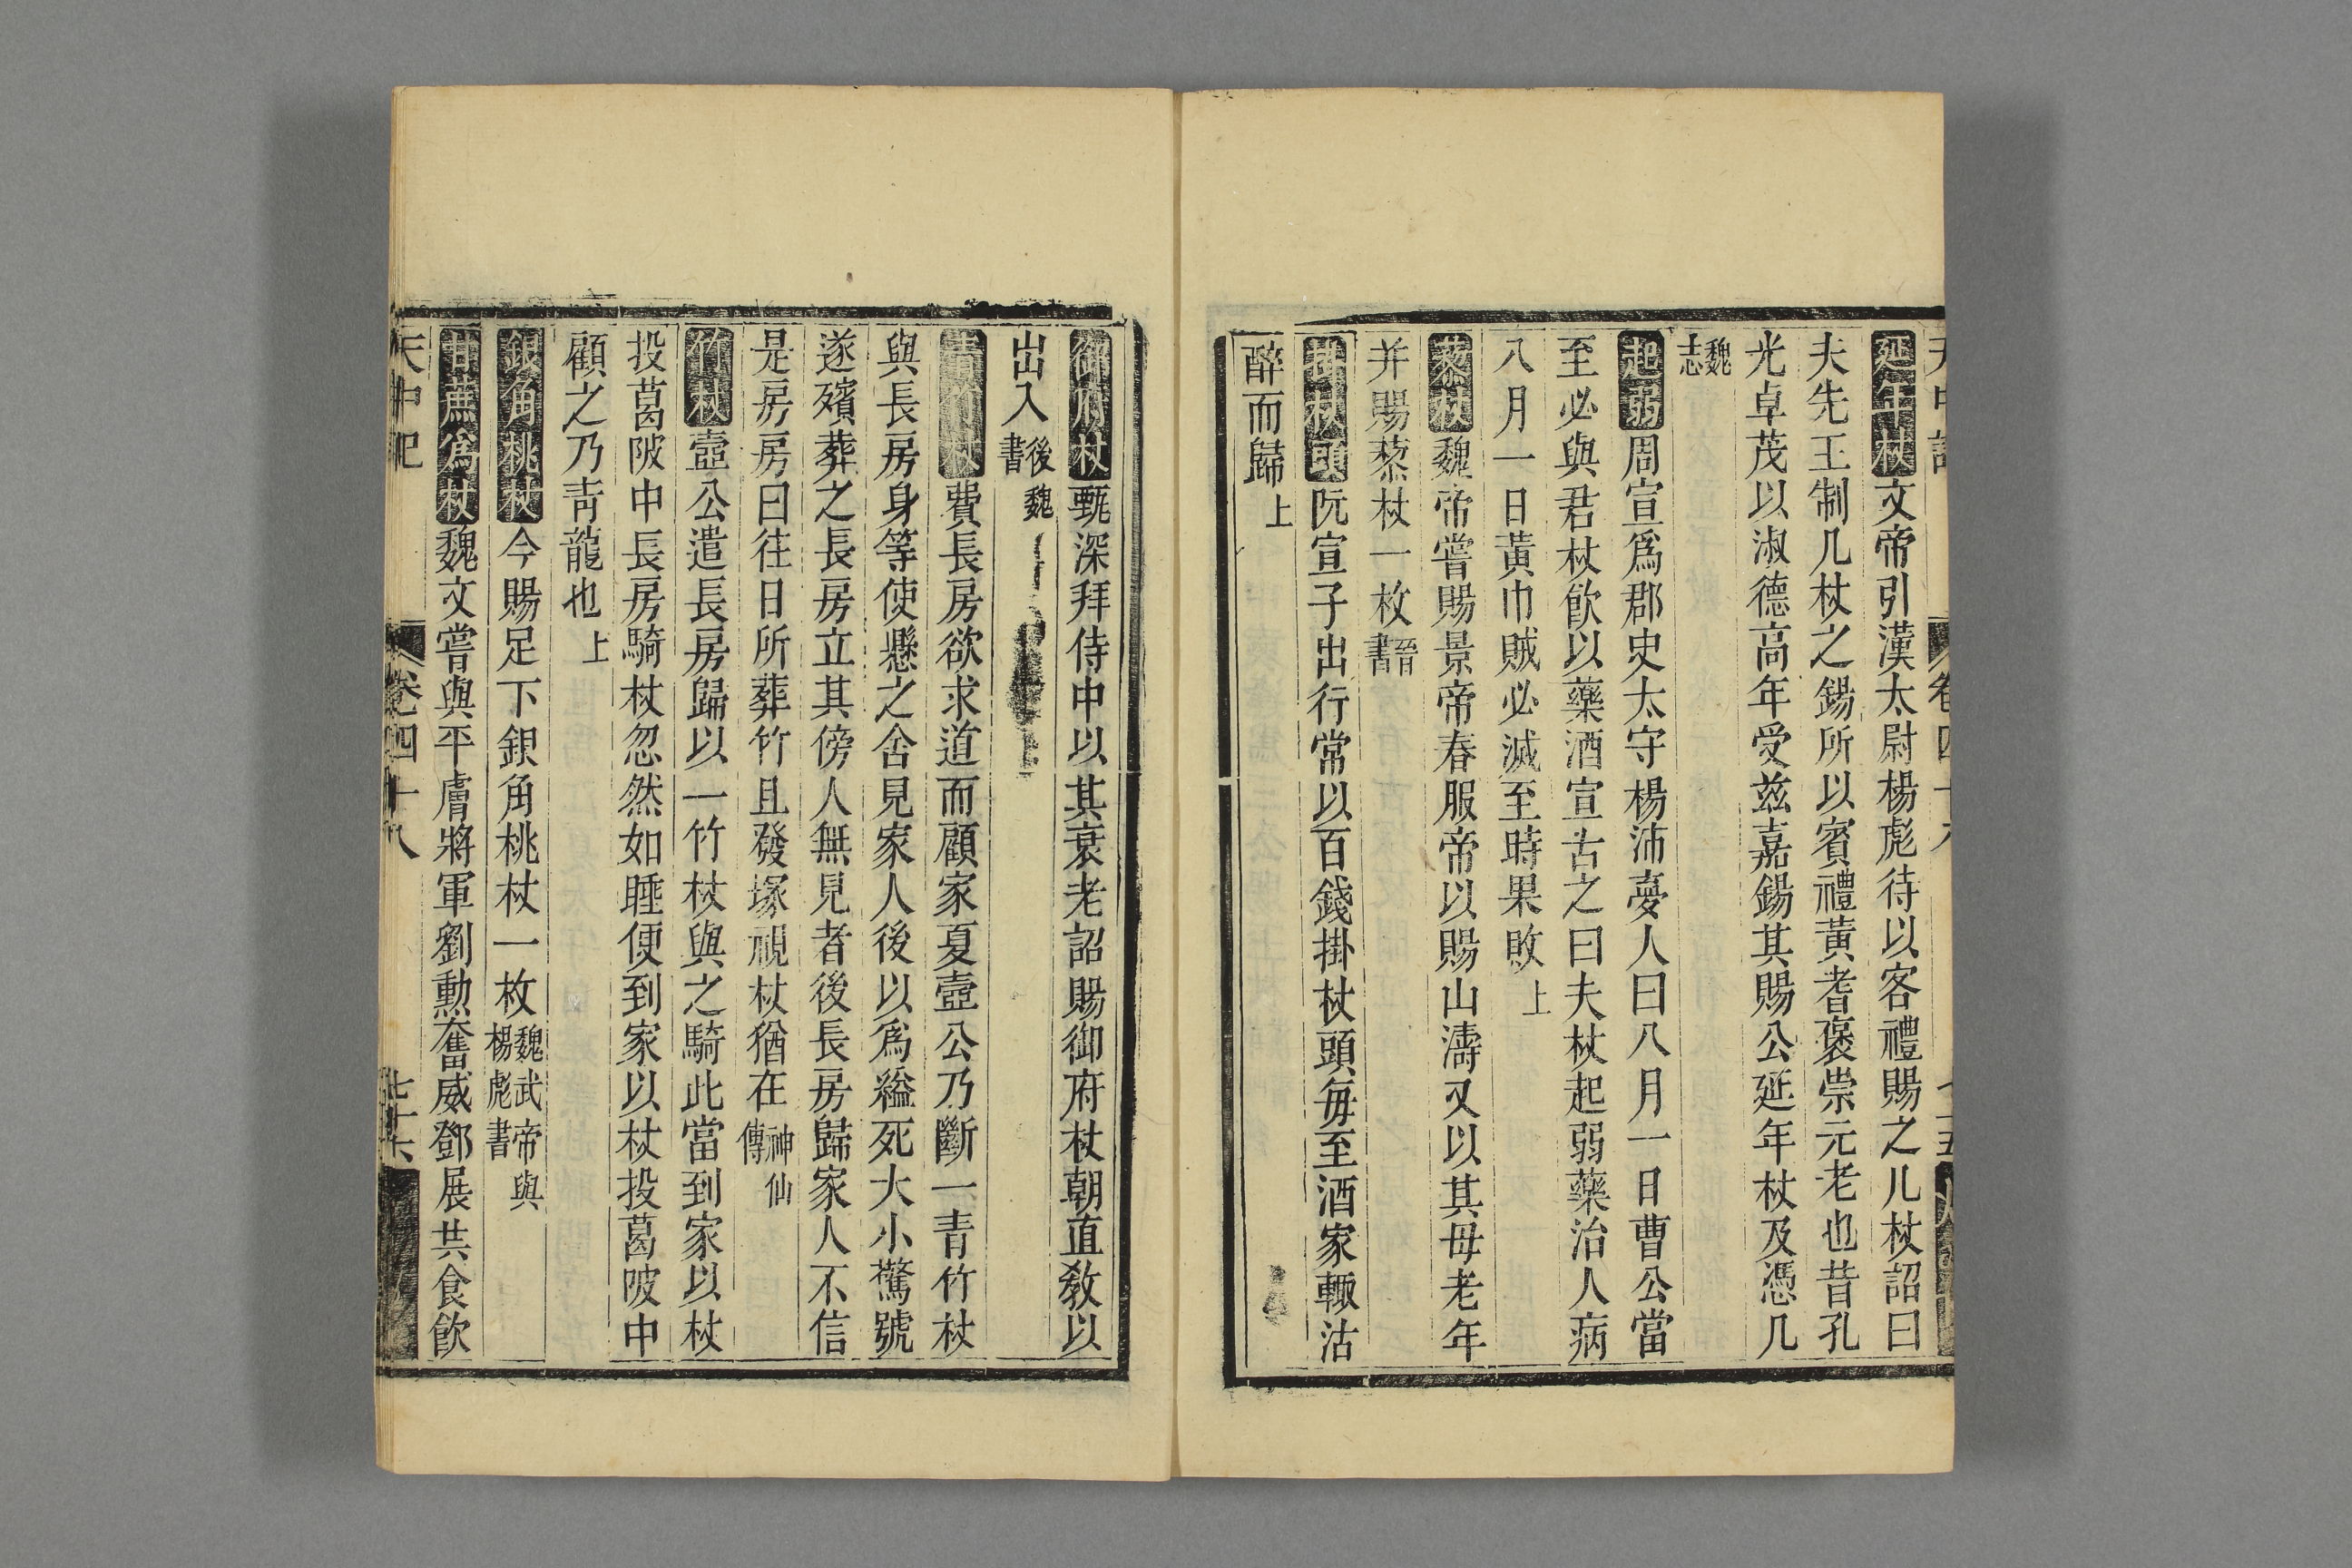 延年杖文帝引漢太尉楊彪待以客禮賜之几杖詔曰
夫先王制几杖之錫所以賓禮黃耇褒崇元老也昔孔
光卓茂以淑德高年受兹嘉錫其賜公延年杖及憑几
魏志
起弱周宣爲郡史太守楊沛夢人曰八月一日曹公當
至必與君杖飮以藥酒宣占之曰夫杖起弱藥治人病
八月一日黃巾賊必滅至時果敗上
藜杖魏帝嘗賜景帝春服帝以賜山濤又以其母老年
并賜藜杖一枚晉書
掛杖頭阮宣子出行常以百錢掛杖頭每至酒家輙沽
醉而歸上
御府杖甄深拜侍中以其衰老詔賜御府杖朝直敎以
出入後魏書
靑竹杖費長房欲求道而顧家憂壺公乃斷一青竹杖
與長房身等使懸之舍見家人後以爲縊死大小驚號
遂殯葬之長房立其傍人無見者後長房歸家人不信
是房房曰往日所葬竹且發塚視杖猶在神仙傳
竹杖壺公遣長房歸以一竹杖與之騎此當到家以杖
投葛陂中長房騎杖忽然如睡便到家以杖投葛陂中
顧之乃靑龍也上
銀角桃杖今賜足下銀角桃杖一枚魏武帝與楊彪書
甘蔗爲杖魏文嘗與平膚將軍劉勳奮威鄧展共食飮
天中記 卷四十八 七十六